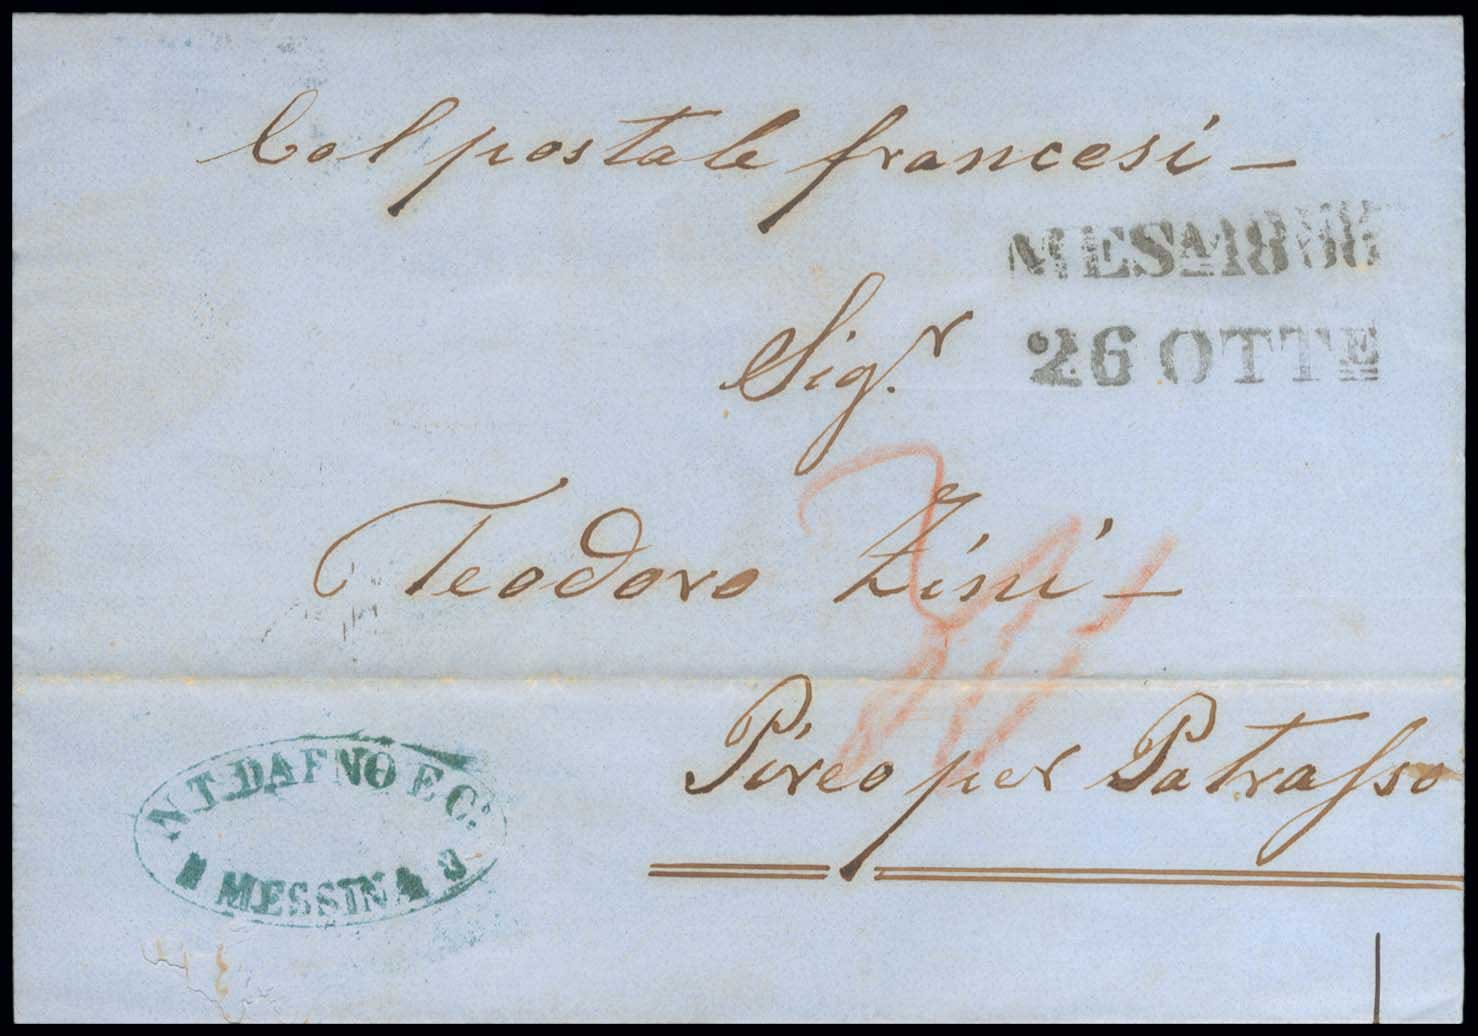 Col postale francesi —
MESA 18
26 OTTE
Sigr.
Teodoro Zini —
Pireo per Patrasso
N. T. DAFNO E Co.
MESSINA